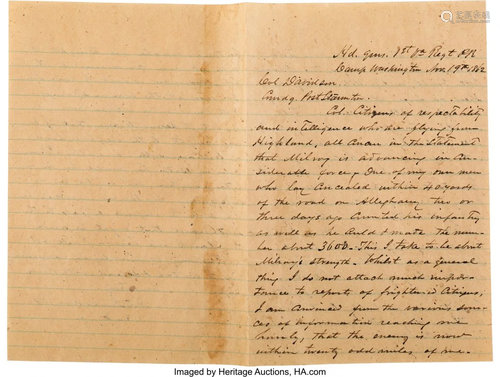 Hd. Qrs. 1st Va Regt P.R.
Camp Washington Nov. 19th 1862
Col Davidson
Comdg. Post Staunton
Col- Citizens of respectability
and intelligence who are flying from
Highland, all concur in the statement
that Milroy is advancing in con-
siderable force. One of my own men
who lay concealed within 40 yards
of the road on Alleghany two or
three days ago counted his infantry
as well as he could & made the num-
ber about 3600. This I take to be about
Milroy's strength. Whilst as a general
thing I do not attach much impor-
tance to reports of frightened citizens,
I am convinced from the various sour-
ces of information reaching me
that the enemy is now
within twenty odd miles of me.
Imaged by Heritage Auctions, HA.com